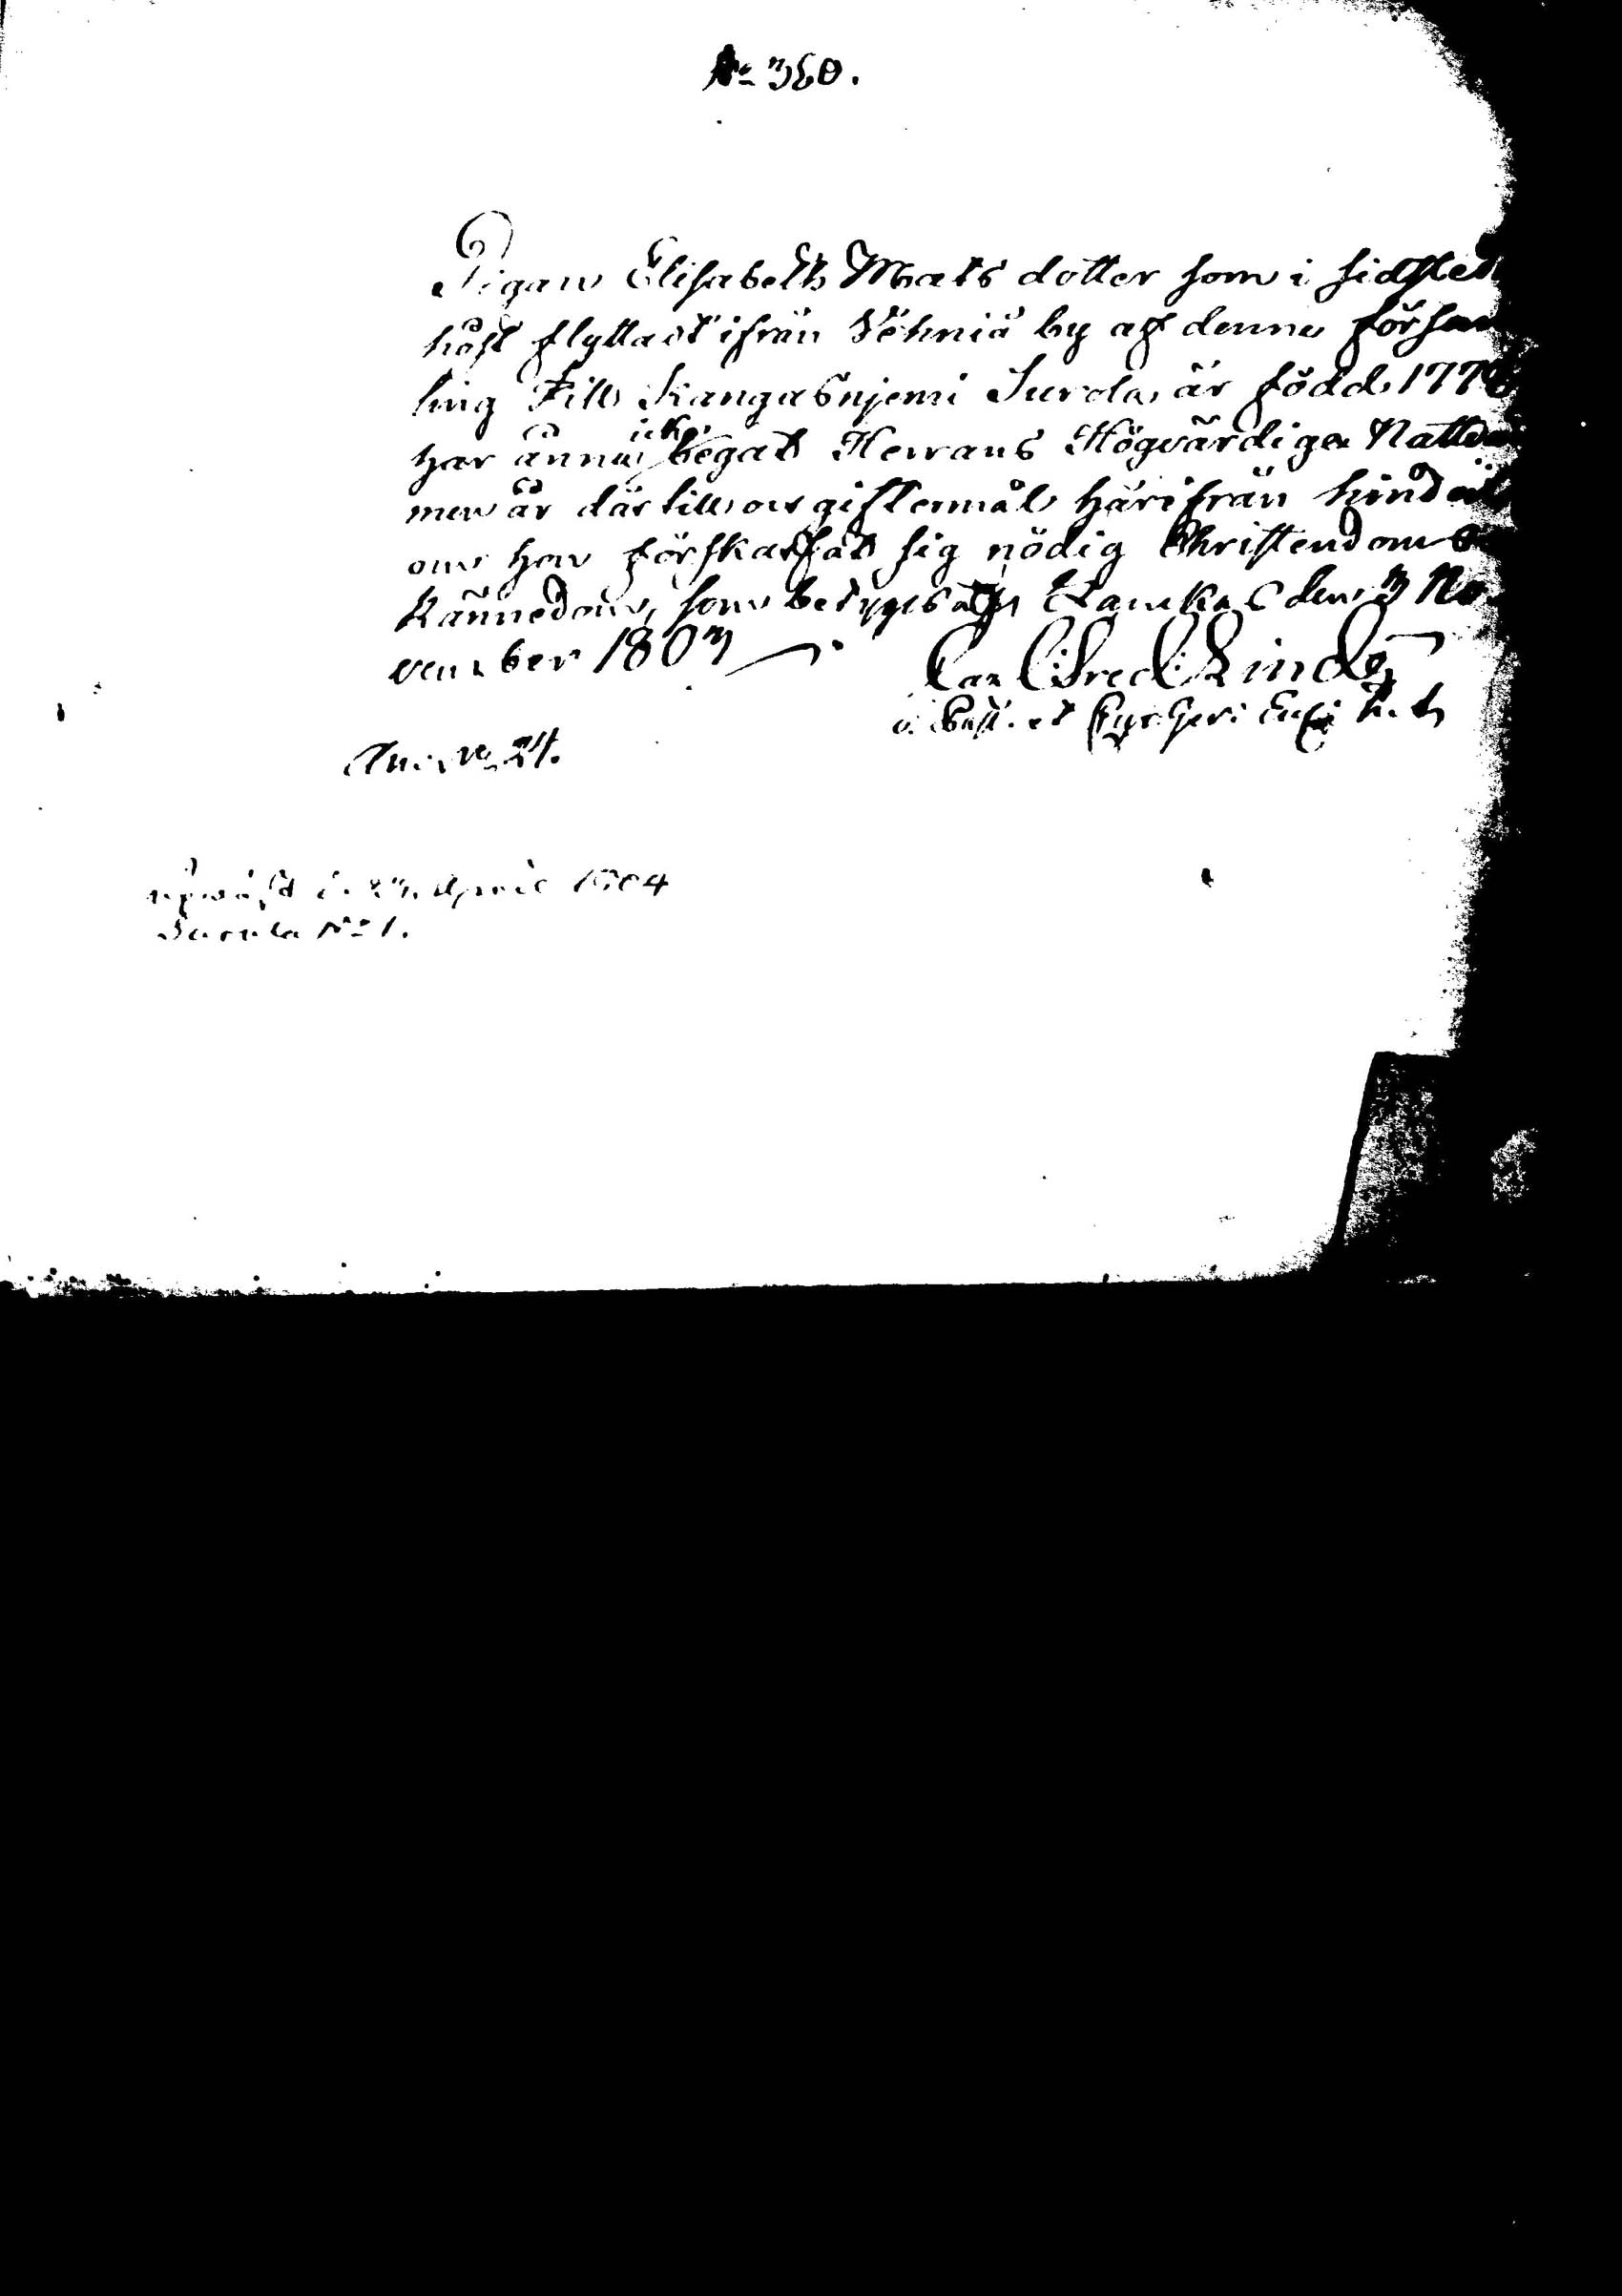 No 360.
Pigan Elisabeth Mats dotter som i sidstled
höst flyttadt ifrån Vehniä by af denne försam
ling till Kangasnjemi Surola, är född 177
har ännu icke begåt Herrans Högvärdiga Nattvard
men är där till och giftermål härifrån hind
om hon förskaffat sig nödig Christendoms
kännedom, som betygas af Laukas den 3 No
vember 1803
Carl Fred: Lindeq
v. Past. et
24.
d. 23. April 1804
Surola No 1.